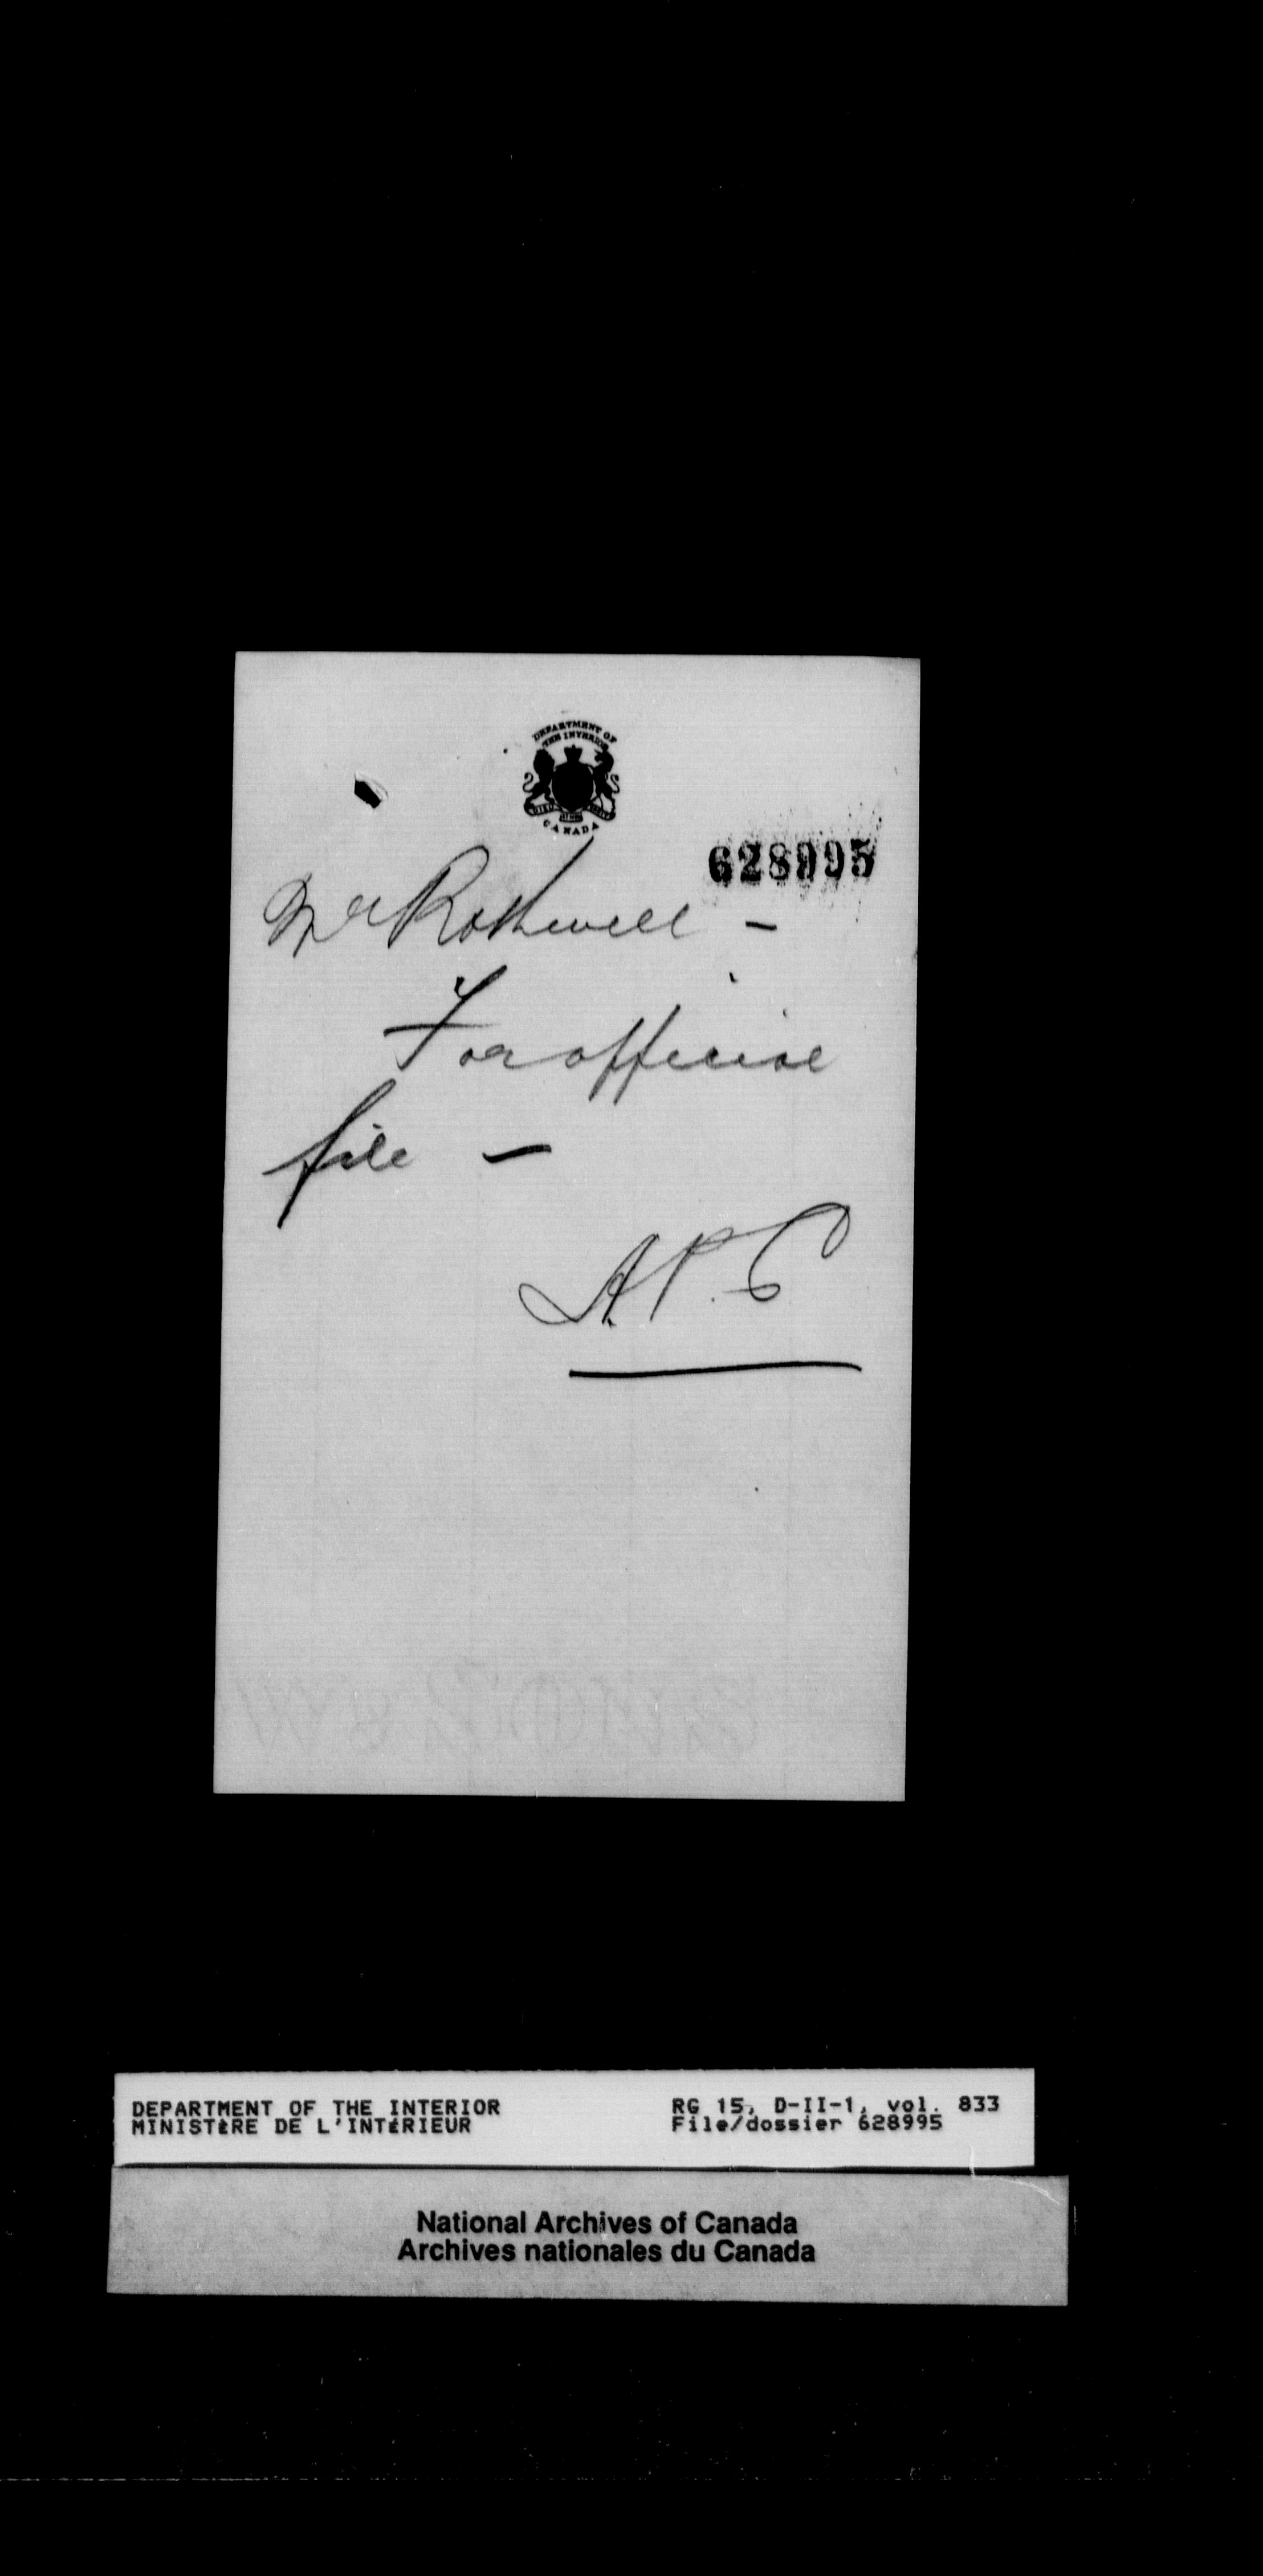 DEPARTMENT OF
THE INTERIOR
CANADA
628995
Mr Rothwell -
For official
file -
A.P.C
DEPARTMENT OF THE INTERIOR
MINISTÈRE DE L'INTÉRIEUR
RG 15, D-II-1, vol. 833
File/dossier 628995
National Archives of Canada
Archives nationales du Canada